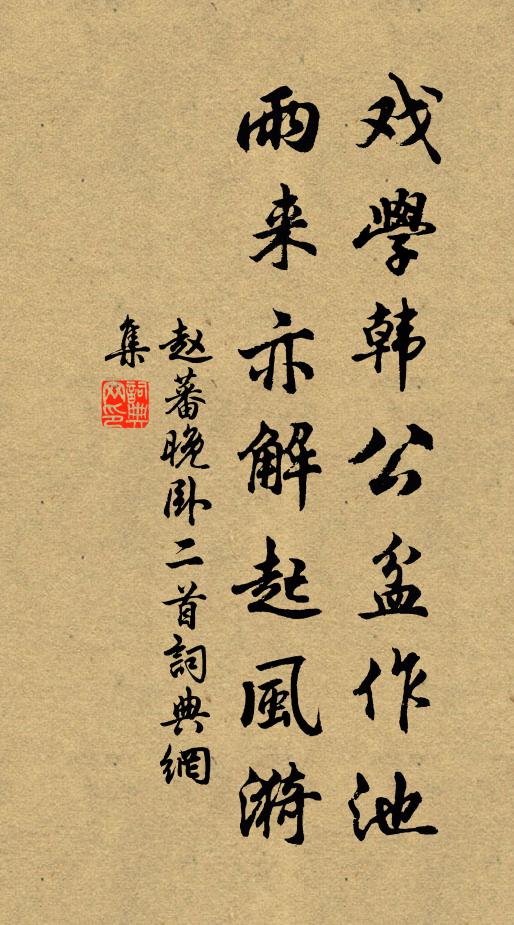 戏學韩公盆作池
雨来亦解起風漪
赵蕃晚卧二首詞典網
集
詞典網印